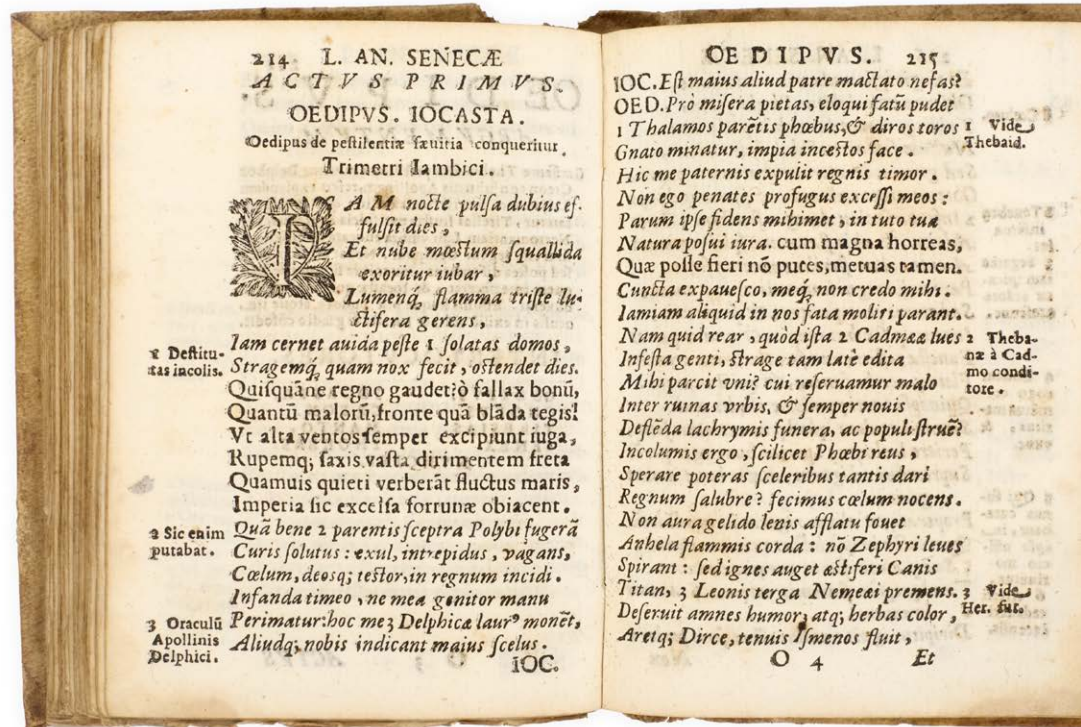 214 L. AN. SENECÆ
ACTVS PRIMVS.
OEDIPVS. IOCASTA.
Oedipus de pestilentiæ sæuitia conqueritur.
Trimetri Iambici.
IAM nocte pulsa dubius ef-
fulsit dies,
Et nube mœstum squallida
exoritur iubar,
Lumenq́; flamma triste lu-
ctifera gerens,
Iam cernet auida peste 1 solatas domos,
1 Destitu-
tas incolis.
Stragemq́; quam nox fecit, ostendet dies.
Quisquāne regno gaudet? ò fallax bonū,
Quantū malorū, fronte quā blāda tegis!
Vt alta ventos semper excipiunt iuga,
Rupemq; saxis vasta dirimentem freta
Quamuis quieti verberāt fluctus maris,
Imperia sic excelsa fortunæ obiacent.
Quā bene 2 parentis sceptra Polybi fugerā
2 Sic enim
putabat.
Curis solutus: exul, intrepidus, vagans,
Cœlum, deosq; testor, in regnum incidi.
Infanda timeo, ne mea genitor manu
Perimatur: hoc me 3 Delphicæ laurꝰ monēt,
3 Oraculū
Apollinis
Delphici.
Aliudq; nobis indicant maius scelus.
IOC.
OEDIPVS. 215
IOC. Est maius aliud patre mactato nefas?
OED. Prò misera pietas, eloqui fatū pudet
1 Thalamos parētis phœbus, & diros toros
1 Vide
Thebaid.
Gnato minatur, impia incestos face.
Hic me paternis expulit regnis timor.
Non ego penates profugus excessi meos:
Parum ipse fidens mihimet, in tuto tua
Natura posui iura. cum magna horreas,
Quæ posse fieri nō putes, metuas tamen.
Cuncta expauesco, meq́; non credo mihi.
Iamiam aliquid in nos fata moliri parant.
Nam quid rear, quòd ista 2 Cadmææ lues
2 Theba-
næ à Cad-
mo condi-
tore.
Infesta genti, strage tam latè edita
Mihi parcit vni? cui reseruamur malo
Inter ruinas vrbis, & semper nouis
Deflēda lachrymis funera, ac populi struē?
Incolumis ergo, scilicet Phœbi reus,
Sperare poteras sceleribus tantis dari
Regnum salubre? fecimus cœlum nocens.
Non aura gelido lenis afflatu fouet
Anhela flammis corda: nō Zephyri leues
Spirant: sed ignes auget æstiferi Canis
Titan, 3 Leonis terga Nemeæi premens.
3 Vide
Her. fur.
Deseruit amnes humor, atq; herbas color,
Aretq; Dirce, tenuis Ismenos fluit,
O 4 Et